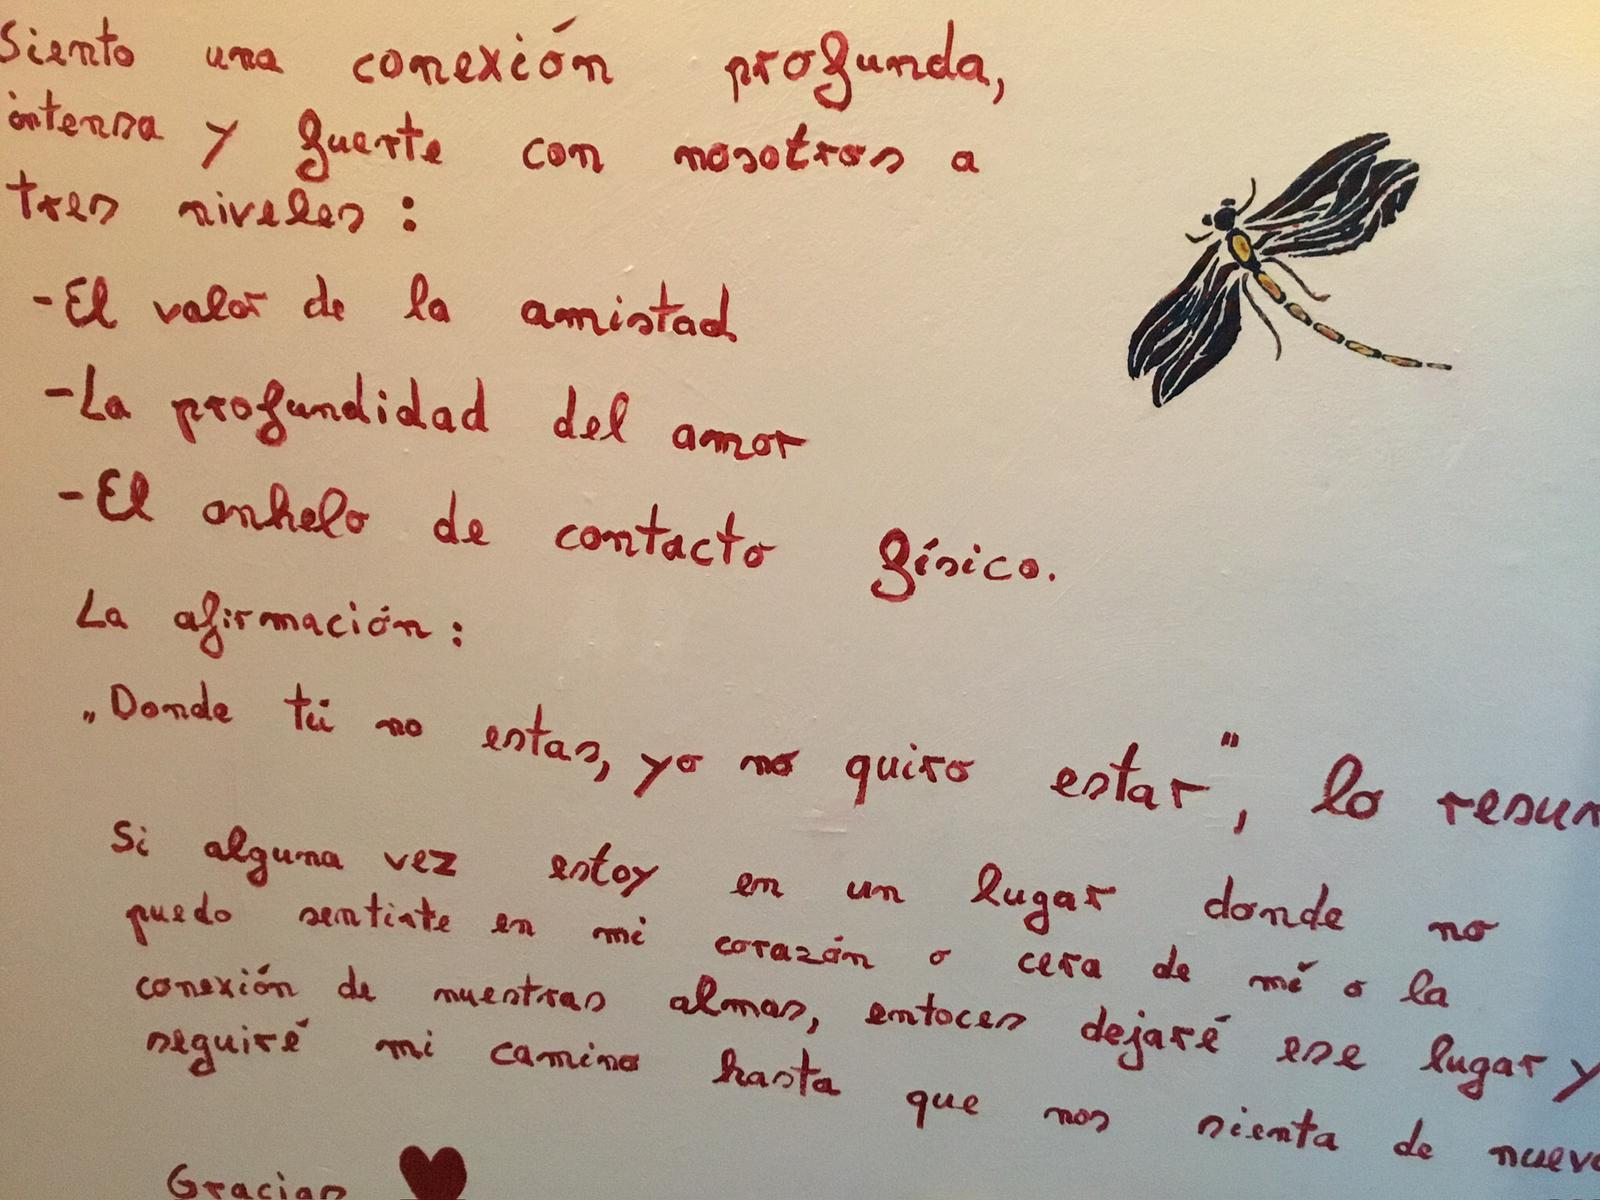 Siento una conexión profunda,
intensa y fuerte con nosotros a
tres niveles :
-El valor de la amistad
-La profundidad del amor
-El anhelo de contacto físico.
La afirmación :
„Donde tú no estas, yo no quiro estar", lo resum
Si alguna vez estoy en un lugar donde no
puedo sentirte en mi corazón o cera de mí o la
conexión de nuestras almas, entoces dejaré ese lugar y
seguiré mi camino hasta que nos sienta de nuevo
Gracias